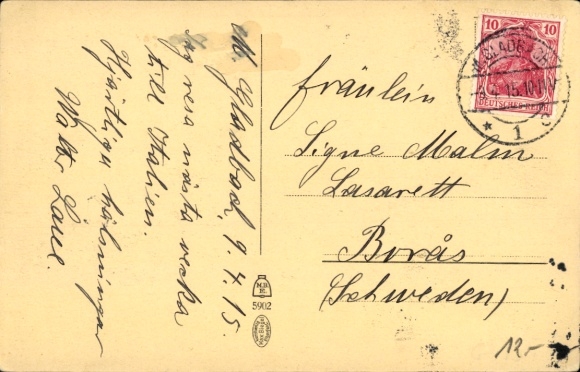 M. Gladbach, 9.4.15.
Jag resa nästa vecka
till Italien.
Hjärtliga hälsningar
Walter
fräulein
Signe Malm
Lasarett
Borås
(Schweden)
10 10
M. GLADBACH
9.4.15.10-11
DEUTSCHES REICH
* 1
5902
12.-